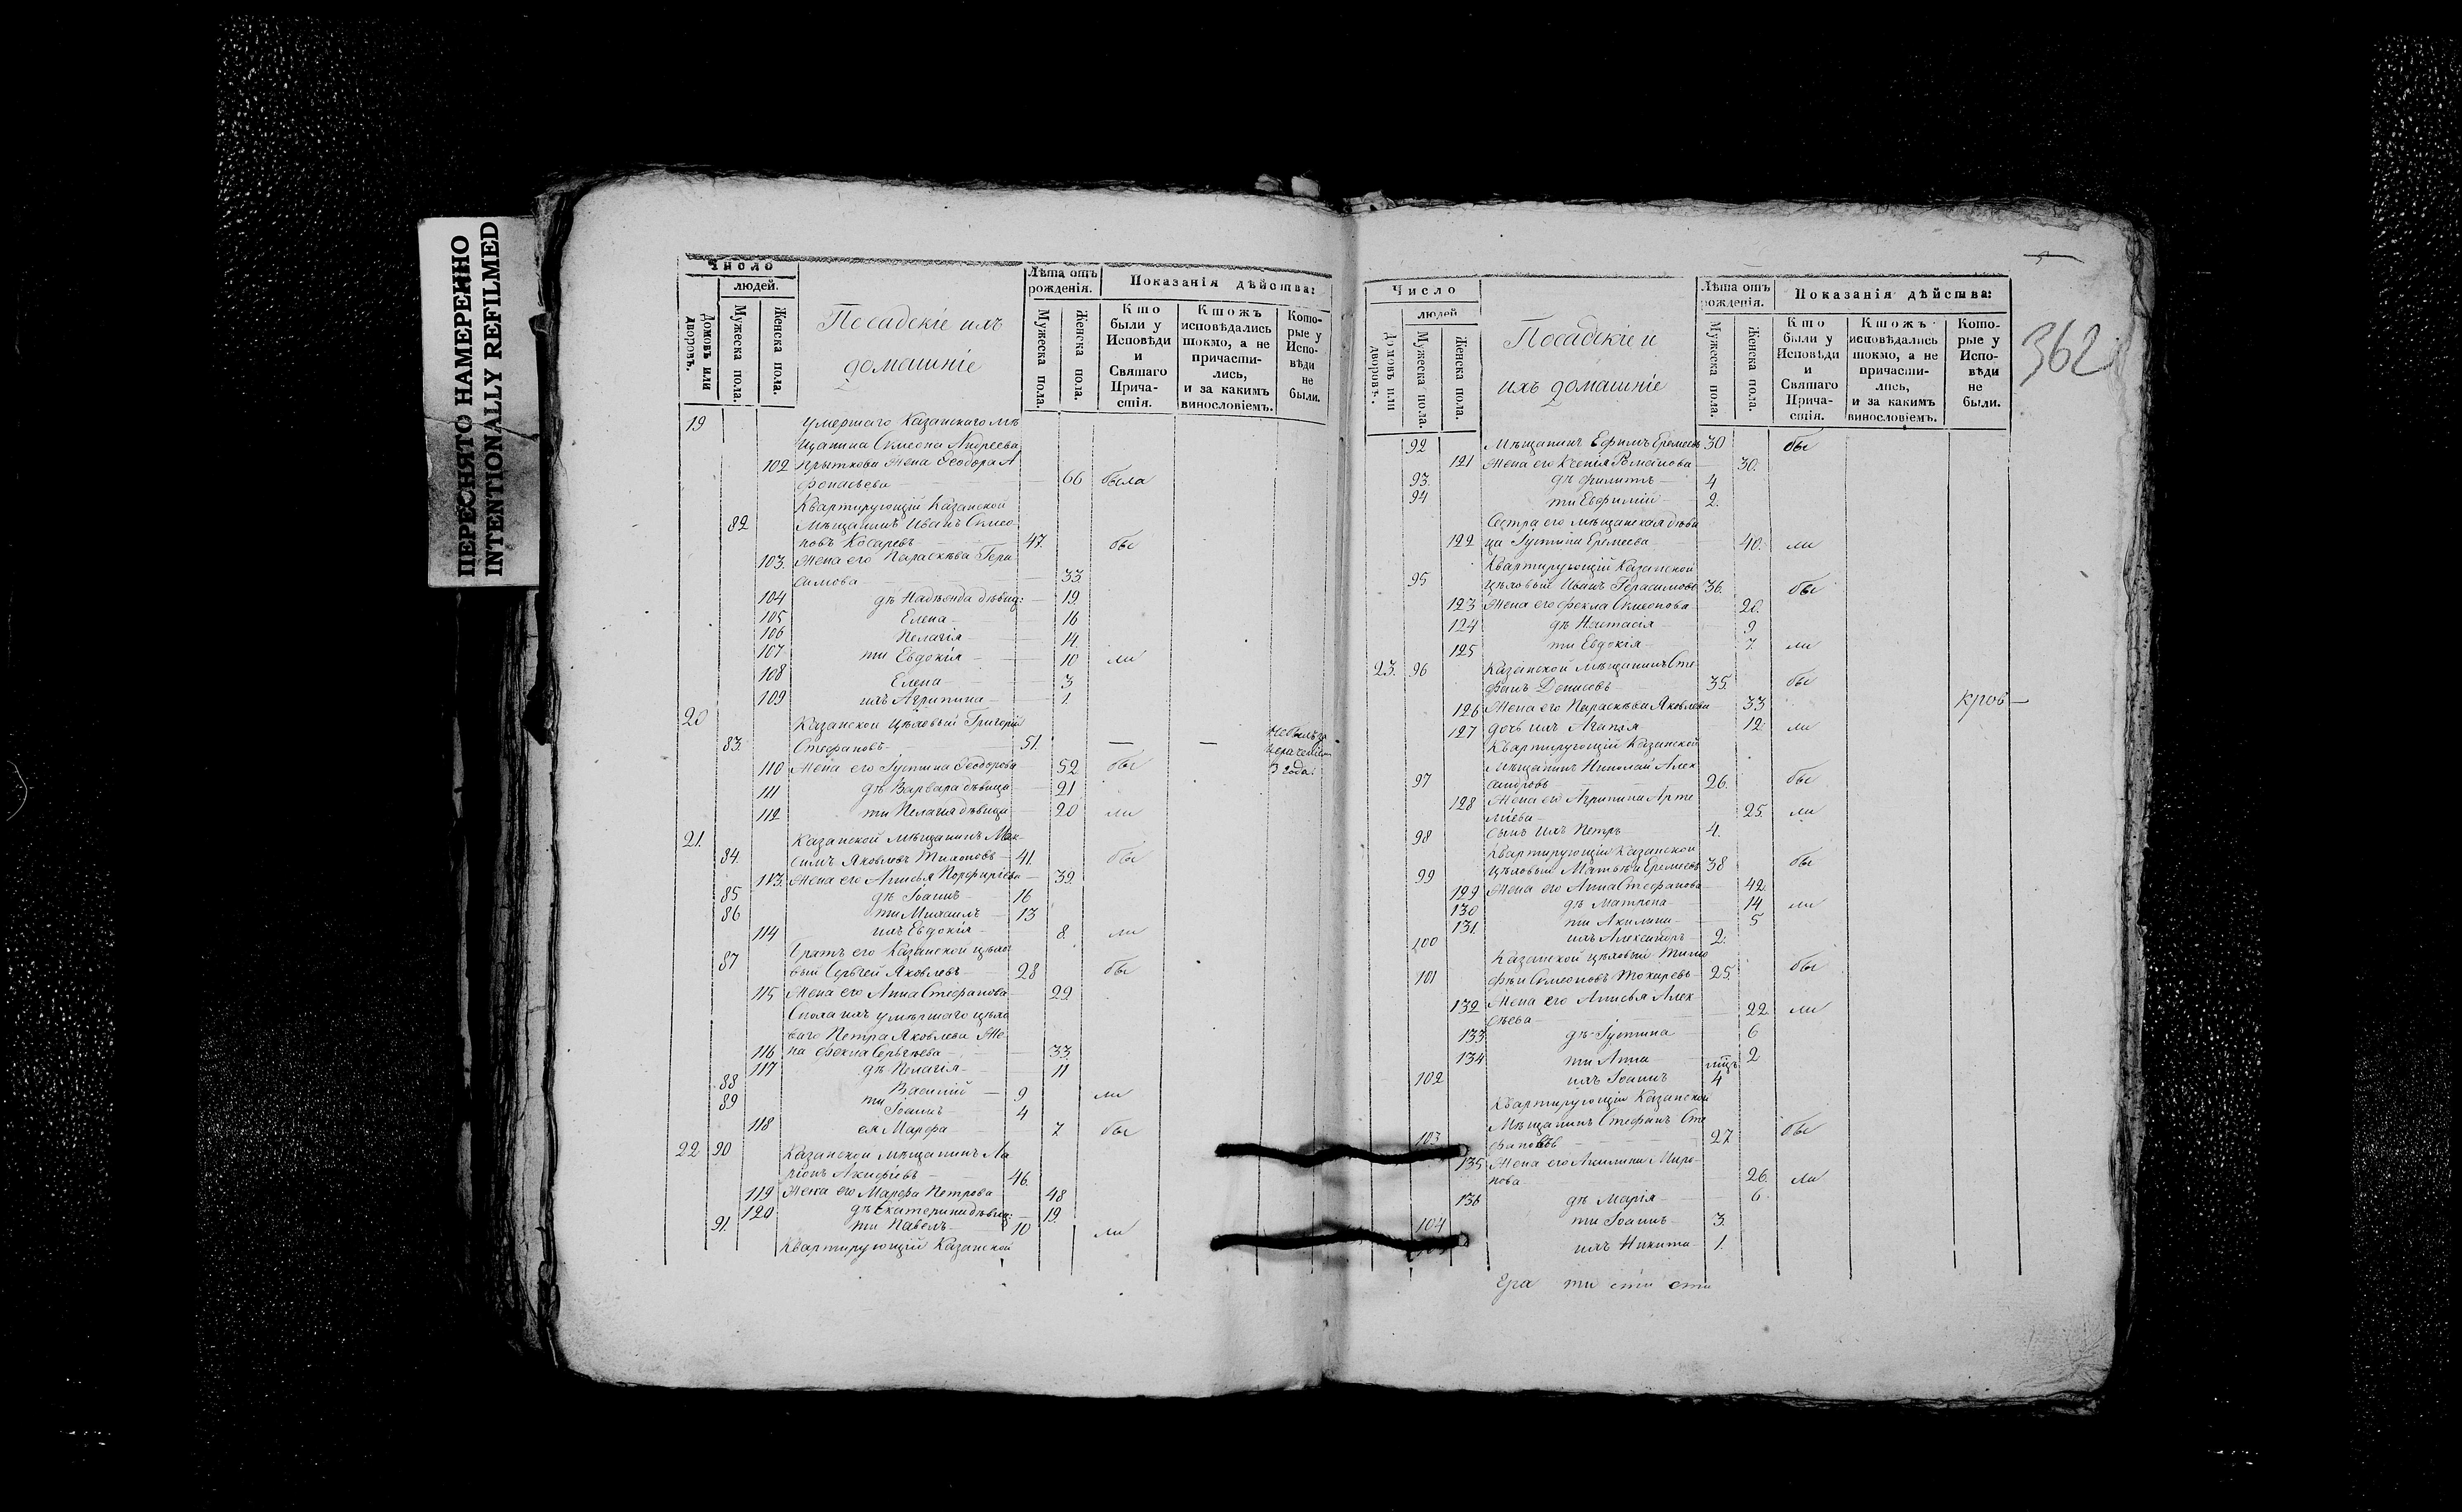 ПЕРЕСНЯТО НАМЕРЕННО
INTENTIONALLY REFILMED
Число
людей.
Домовъ или дворовъ.
Мужеска пола.
Женска пола.
Посадскіе ихъ
домашніе
Лѣта отъ рожденія.
Мужеска пола.
Женска пола.
Показанія дѣйства:
Кто были у Исповѣди и Святаго Прича-стія.
Ктожъ исповѣдались токмо, а не причасти-лись, и за какимъ винословіемъ.
Кото-рые у Испо-вѣди не были.
19 умершаго Казанскаго мѣ
щанина Симеона Андреева
102 Прыткова жена Ѳеодора А
фонасьева 66 была
Квартирующій Казанской
82 мѣщанинъ Иванъ Симео
новъ Косаревъ 47. бы
103. Жена его Параскѣва Гера
симова 33
104 дѣ Надежда дѣвиц: 19.
105 Елена 16
106 Пелагія 14.
107 ти Евдокія 10 ли
108 Елена 3
109 ихъ Агрипина 1.
20 Казанской цѣховый Григорій
83. Стефановъ 51. — — не былъ за
нерачениемъ
110 Жена его Іустина Ѳеодорова 52 бы 3 года.
111 дѣ Варвара дѣвица 21
112 ти Пелагія дѣвица 20 ли
21. Казанской мѣщанинъ Мак
84. симъ Яковлевъ Тихоновъ 41. бы
113. Жена его Анисья Порфиріева 39.
85 дѣ Іоаннъ 16
86 ти Михаилъ 13
114 ихъ Евдокія 8. ли
Братъ его Казанской цѣхо
87 вый Сергей Яковлевъ 28 бы
115 Жена его Анна Стефанова 22
Сноха ихъ умершаго цѣхо
ваго Петра Яковлева же
116 на Фекла Сергеева 33.
117 дѣ Пелагія 11
88 Василий 9 ли
89 ти Іоаннъ 4
118 ея Марфа 7 бы
22 90 Казанской мѣщанинъ Ла
ріонъ Акифіевъ 46.
119 Жена его Марфа Петрова 48
120 дѣ Екатерина дѣвиц: 19.
91. ти Павелъ 10 ли
Квартирующій Казанской
362
Число
людей
Домовъ или дворовъ.
Мужеска пола.
Женска пола.
Посадскіе и
ихъ домашніе
Лѣта отъ рожденія.
Мужеска пола.
Женска пола.
Показанія дѣйства:
Кто были у Исповѣди и Святаго Прича-стія.
Ктожъ исповѣдались токмо, а не причасти-лись, и за какимъ винословіемъ.
Кото-рые у Испо-вѣди не были.
92 Мѣщанинъ Ефимъ Еремеевъ 30 бы
121 Жена его Ксенія Романова 30.
93. дѣ Филипъ 4
94 ти Евфимій 2.
Сестра его мѣщанская дѣви
122 ца Іустина Еремеева 40. ли
Квартирующій Казанской
95 цѣховый Иванъ Герасимовъ 36. бы
123 Жена его Фекла Симеонова 20.
124 дѣ Настасія 9
125 ти Евдокія 7. ли
23. 96 Казанской мѣщанинъ Сте
фанъ Денисовъ 35. бы
126 Жена его Параскѣва Яковлева 33 кров —
127 дочь ихъ Агапія 12. ли
Квартирующій Казанской
мѣщанинъ Николай Алек
97 сандровъ 26. бы
128 Жена его Агрипина Арте
міева 25. ли
98 сынъ ихъ Петръ 4.
Квартирующій Казанской
99 цѣховый Матвѣй Еремеевъ 38 бы
129 Жена его Анна Стефанова 42.
130 дѣ Матрона 14 ли
131. ти Акилина 5
100 ихъ Александръ 2.
Казанской цѣховый Тимо
101 фѣй Симеоновъ Токаревъ 25. бы
132 Жена его Анисья Алек
сѣева 22 ли
133 дѣ Іустина 6
134 ти Анна 2
102 ихъ Іоаннъ 4
Квартирующій Казанской
мѣщанинъ Стефанъ Сте
103 фановъ 27 бы
135 Жена его Акилина Миро
нова 26. ли
136 дѣ Марія 6
104 ти Іоаннъ 3.
ихъ Никита 1.